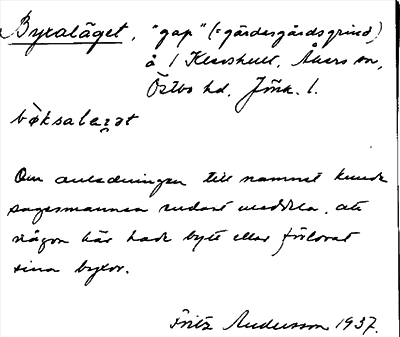 Byxaläget, "gap" (= gärdesgårdsgrind)
å 1 Klevshult, Åkers sn,
Östbo hd. Jönk. l.
Om anledningen till namnet kunde
sagesmannen endast meddela, att
någon här hade bytt eller förlorat
sina byxor.
Fritz Andersson 1937.